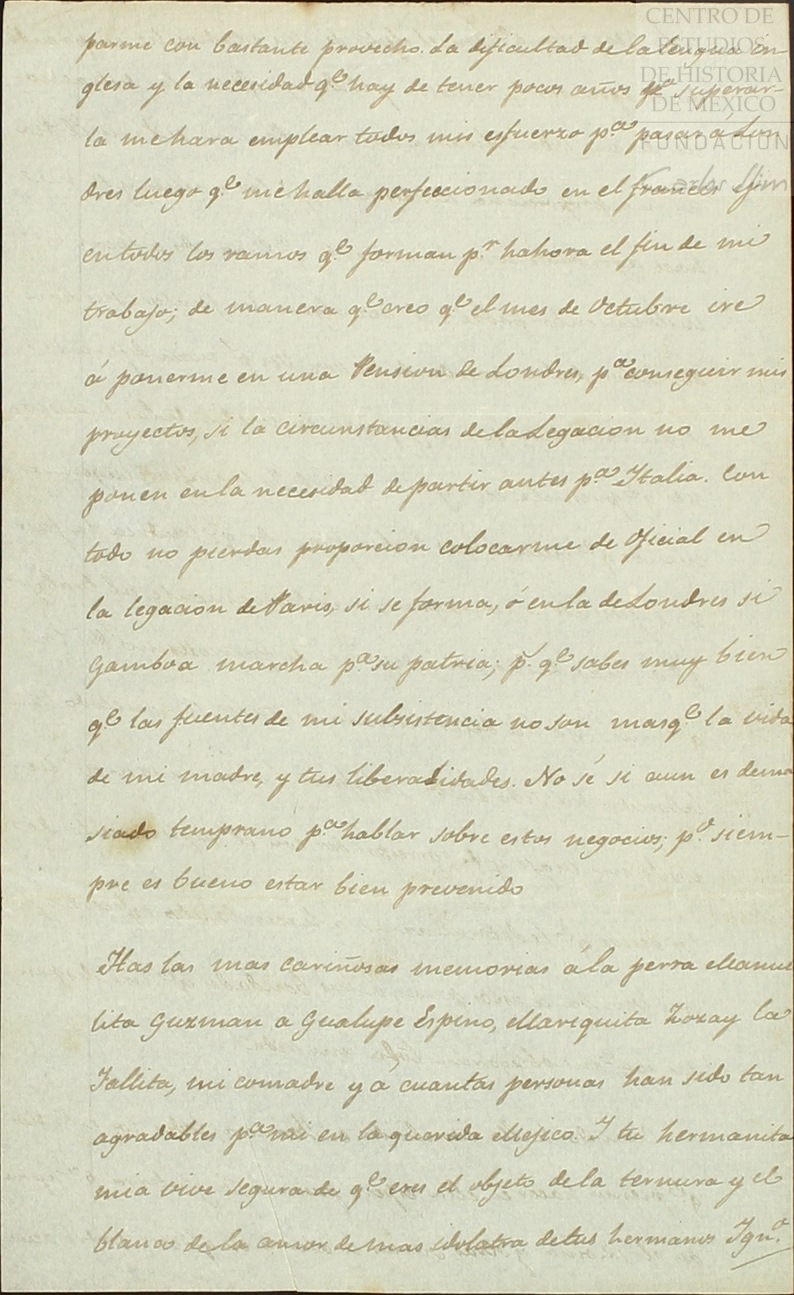 CENTRO DE
ESTUDIOS
DE HISTORIA
DE MÉXICO
FUNDACIÓN
Carlos Slim
parme con bastante provecho. La dificultad de la lengua in-
glesa y la necesidad q.e hay de tener pocos años p.a superar-
la me hara emplear todos mis esfuerzo p.a pasar a Lon
dres luego q.e me halla perfeccionado en el frances y
en todos los ramos q.e forman p.r hahora el fin de mi
trabajo; de manera q.e creo q.e el mes de Octubre ire
á ponerme en una Pension de Londres, p.a conseguir mis
proyectos, si la circunstancias de la Legacion no me
ponen en la necesidad de partir antes p.a Italia. Con
todo no pierdas proporcion colocarme de Oficial en
la legacion de Paris, si se forma, ó en la de Londres si
Gamboa marcha p.a su patria; p.r q.e sabes muy bien
q.e las fuentes de mi subsistencia no son mas q.e la vida
de mi madre, y tus liberalidades. No sé si aun es dema
siado temprano p.a hablar sobre estos negocios; p.o siem-
pre es bueno estar bien prevenido
Has las mas cariñosas memorias á la perra Manue
lita Guzman a Gualupe Espino, Mariquita Zozay la
Tallita, mi comadre y a cuantas personas han sido tan
agradables p.a mi en la querida Mejico. Y tu hermanita
mia vive segura de q.e eres el objeto de la ternura y el
blanco de la amor de mas idolatra de tus hermanos Ign.o